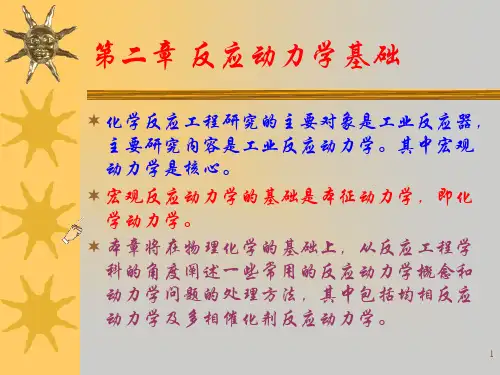 第二章 反应动力学基础
化学反应工程研究的主要对象是工业反应器，
主要研究内容是工业反应动力学。其中宏观
动力学是核心。
宏观反应动力学的基础是本征动力学，即化
学动力学。
本章将在物理化学的基础上，从反应工程学
科的角度阐述一些常用的反应动力学概念和
动力学问题的处理方法，其中包括均相反应
动力学及多相催化剂反应动力学。
1